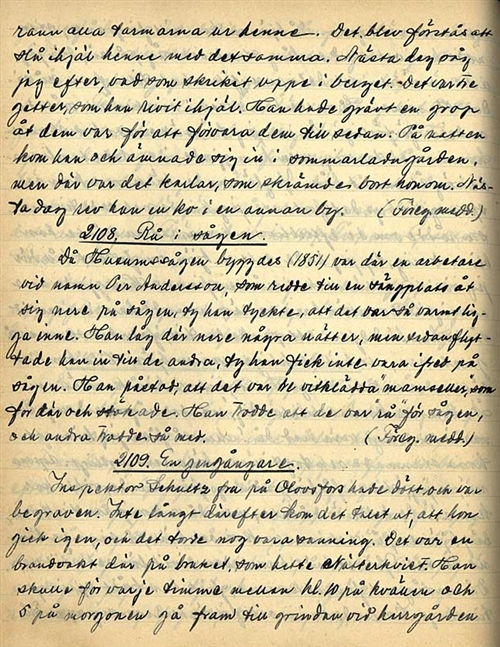 rann alla tarmarna ur henne. Det blev förstås att
slå ihjäl henne med det samma. Nästa dag såg
jag efter, vad som skrikit uppe i berget. Det var tre
getter, som han rivit ihjäl. Han hade grävt en grop
åt dem var för att förvara dem till sedan. På natten
kom han och ämnade sig in i sommarladugården,
men där var det karlar, som skrämde bort honom. Näs-
ta dag rev han en ko i en annan by. (Föreg. medd.)
2108. Rå i sågen.
Då Håcumssågen byggdes (1851) var där en arbetare
vid namn Per Andersson, som redde till en sängplats åt
sig nere på sågen, ty han tyckte, att det var så varmt lig-
ga inne. Han låg där nere några nätter, men sedan flyt-
tade han in till de andra, ty han fick inte vara ifred på
sågen. Han påstod, att det var de vitklädda mamseller, som
för där och stökade. Han trodde att de var rå för sågen,
och andra trodde så med. (Föreg. medd.)
2109. En gengångare.
Inspektor Schultz fra på Olovsfors hade dött och var
begraven. Inte långt därefter kom det talet ut, att hon
gick igen, och det torde nog vara sanning. Det var en
brandvakt där på bruket, som hette Natterkvist. Han
skulle för varje timme mellan kl. 10 på kvällen och
5 på morgonen gå fram till grindan vid herrgården